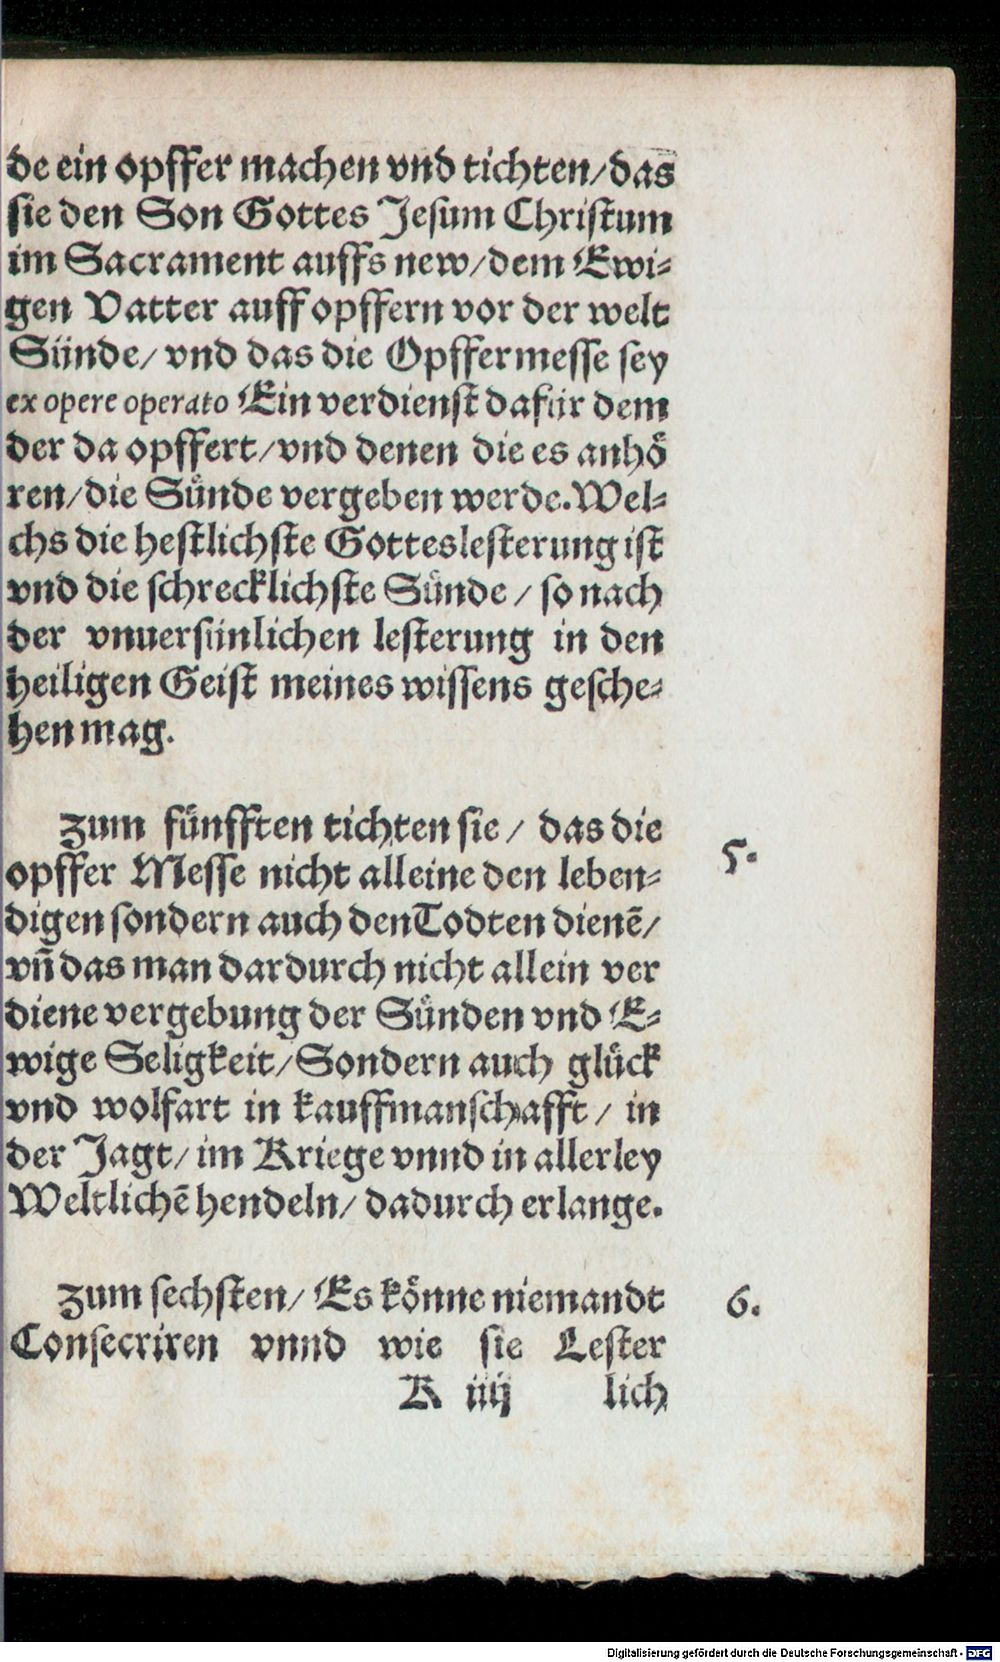 de ein opffer machen vnd tichten/das
sie den Son Gottes Jesum Christum
im Sacrament auffs new/dem Ewi-
gen Vatter auff opffern vor der welt
Sünde/ vnd das die Opffermesse sey
ex opere operato Ein verdienst dafür dem
der da opffert/vnd denen die es anhö
ren/die Sünde vergeben werde.Wel-
chs die hestlichste Gotteslesterung ist
vnd die schrecklichste Sünde / so nach
der vnuersünlichen lesterung in den
heiligen Geist meines wissens gesche-
hen mag.
zum fünfften tichten sie / das die
5.
opffer Messe nicht alleine den leben-
digen sondern auch den Todten dienē/
vn̄ das man dardurch nicht allein ver
diene vergebung der Sünden vnd E-
wige Seligkeit/Sondern auch glück
vnd wolfart in kauffmanschafft / in
der Jagt/im Kriege vnnd in allerley
Weltlichē hendeln/ dadurch erlange.
zum sechsten/ Es könne niemandt
6.
Consecriren vnnd wie sie Lester
K iiij lich
Digitalisierung gefördert durch die Deutsche Forschungsgemeinschaft - DFG